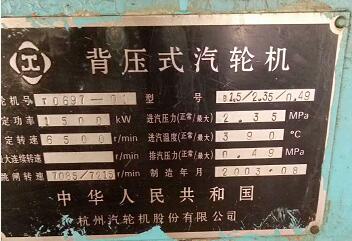 背压式汽轮机
轮机号 T0697-01 型 号 B1.5/2.35/0.49
定功率 1500 kW 进汽压力(正常/最大) 2.35 MPa
定转速 6500 r/min 进汽温度(正常/最大) 390 ℃
最大连续转速 r/min 排汽压力(正常/最大) 0.49 MPa
跳闸转速 7085/7215 r/min 制造年月 2003.08
中华人民共和国
杭州汽轮机股份有限公司